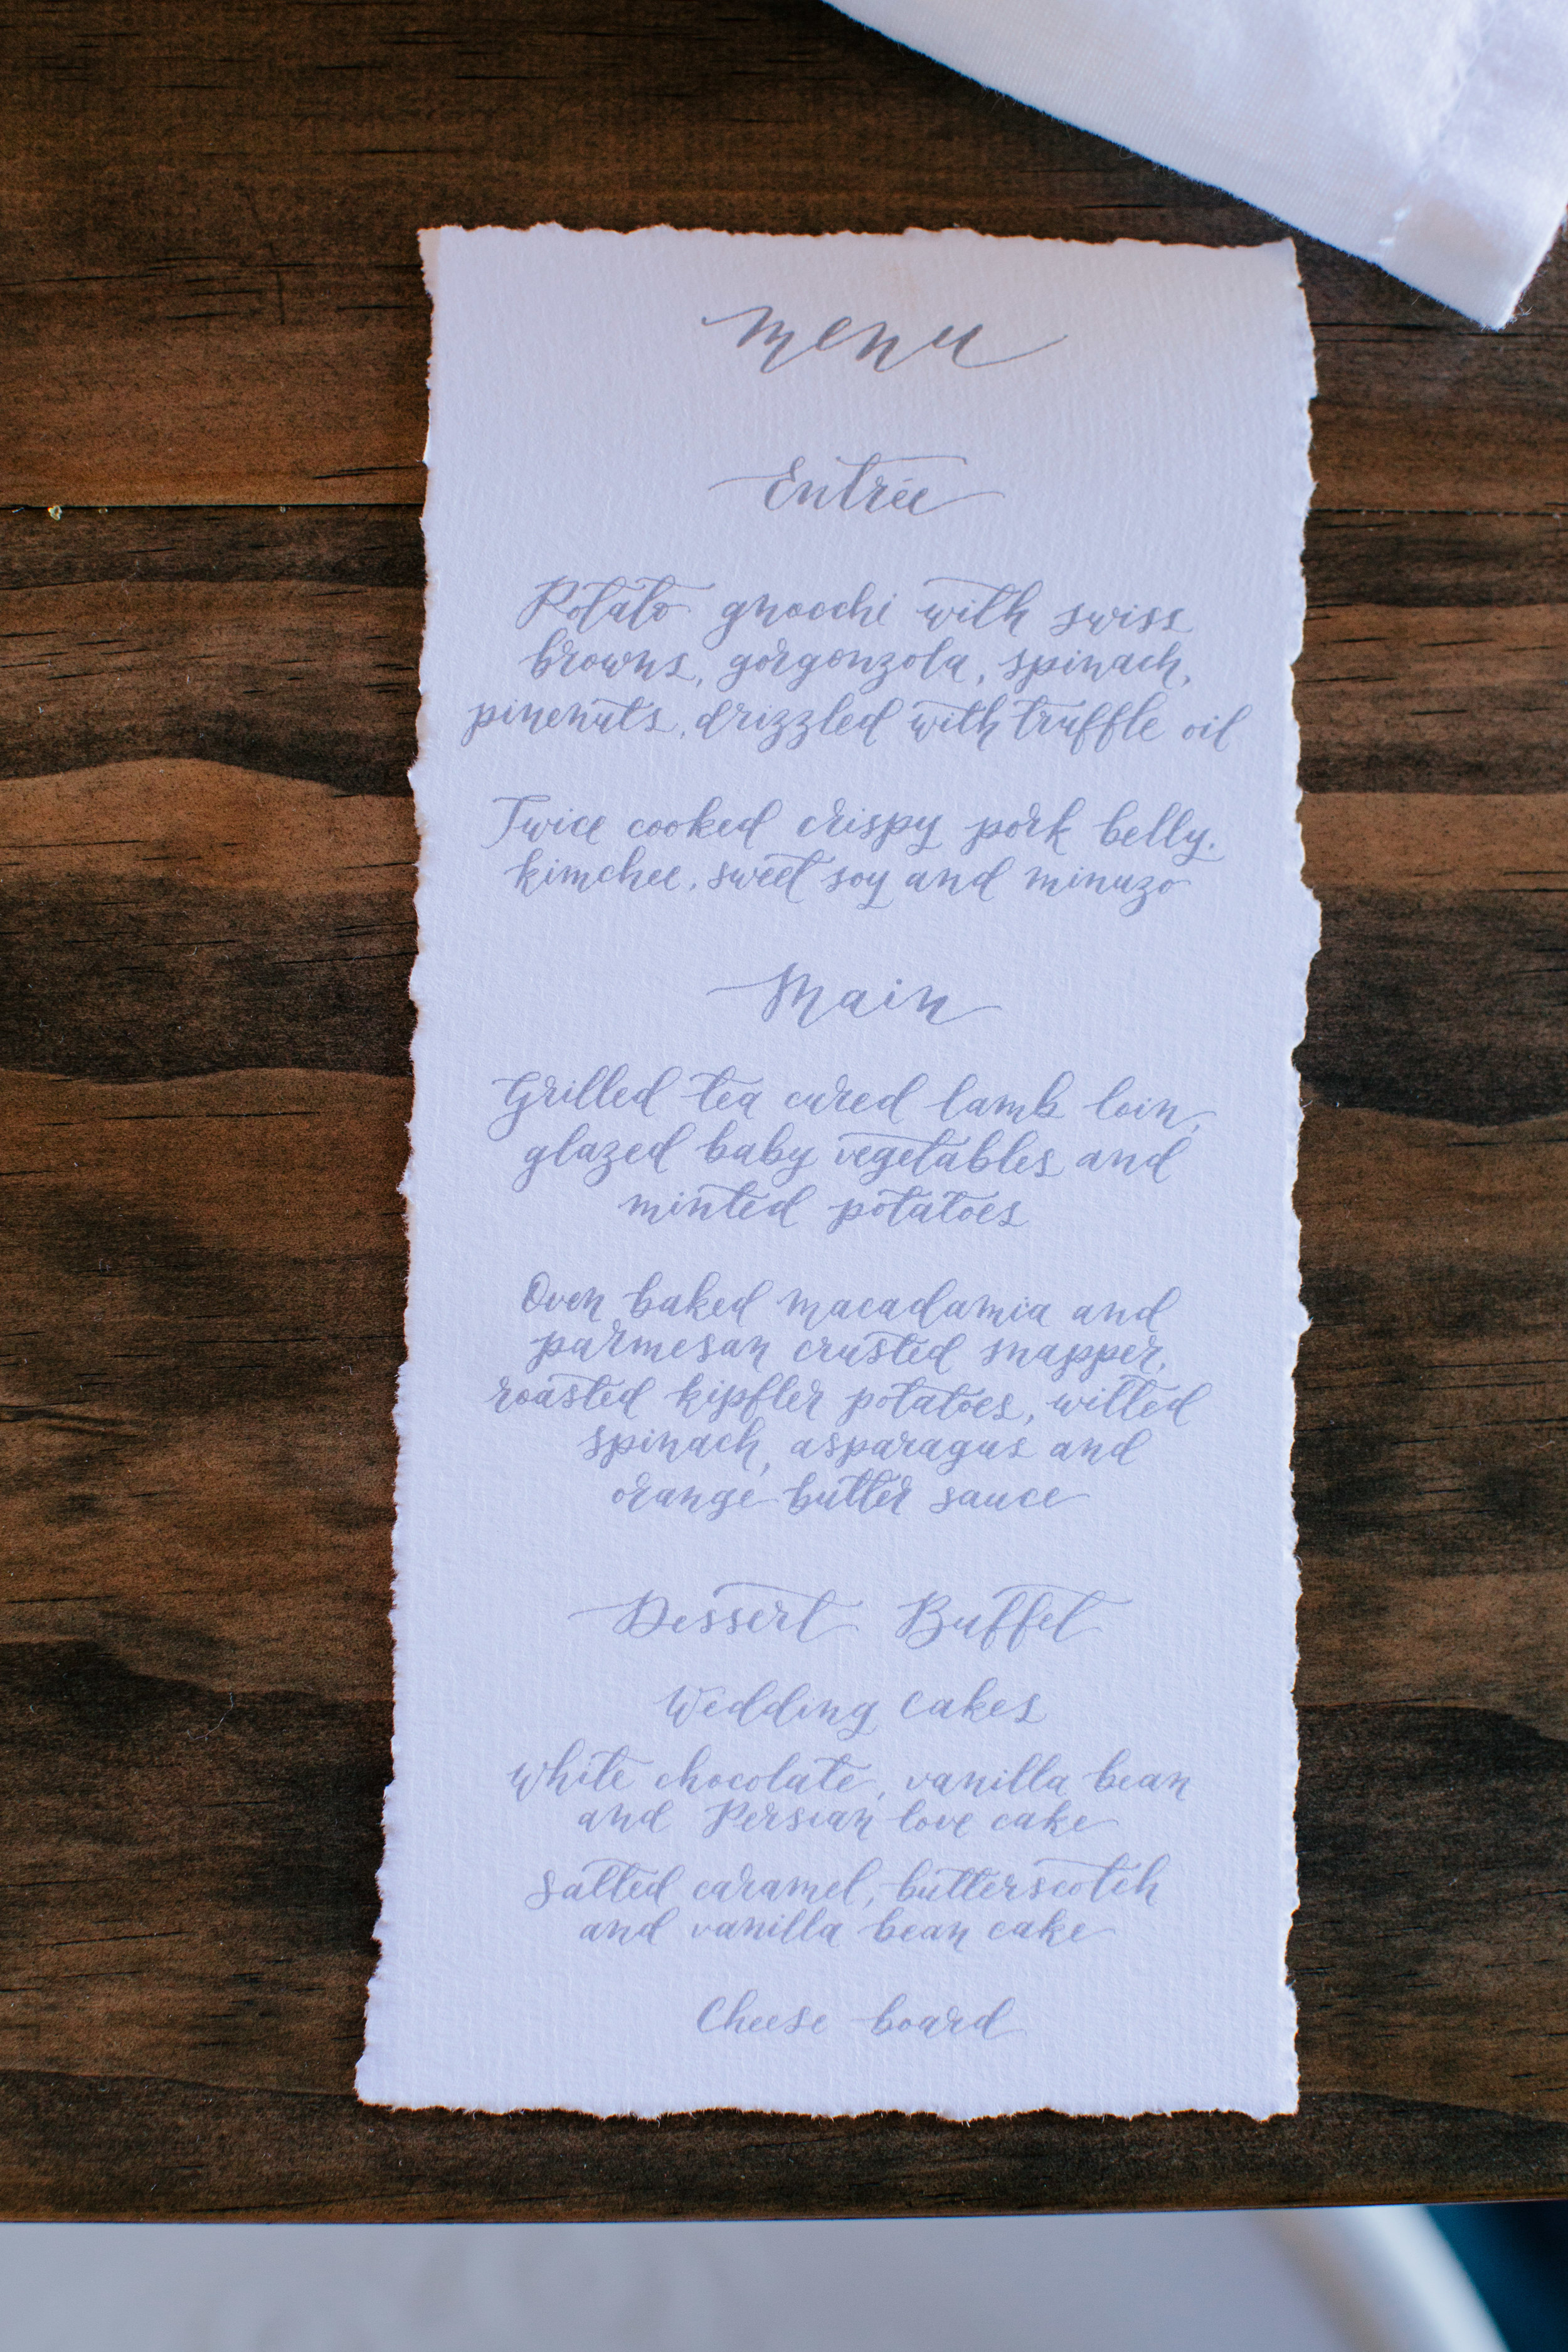 menu
Entrée
Potato gnocchi with swiss
browns, gorgonzola, spinach,
pinenuts, drizzled with truffle oil
Twice cooked crispy pork belly,
kimchee, sweet soy and minuzo
Main
Grilled tea cured lamb loin,
glazed baby vegetables and
minted potatoes
Oven baked macadamia and
parmesan crusted snapper,
roasted kipfler potatoes, wilted
spinach, asparagus and
orange butter sauce
Dessert Buffet
Wedding Cakes
White chocolate, vanilla bean
and Persian love cake
Salted caramel, butterscotch
and vanilla bean cake
Cheese board